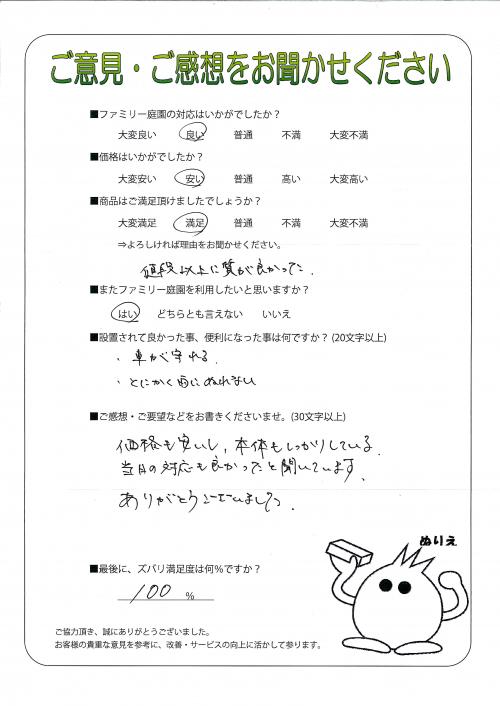 ご意見・ご感想をお聞かせください
■ファミリー庭園の対応はいかがでしたか？
大変良い 良い 普通 不満 大変不満
■価格はいかがでしたか？
大変安い 安い 普通 高い 大変高い
■商品はご満足頂けましたでしょうか？
大変満足 満足 普通 不満 大変不満
⇒よろしければ理由をお聞かせください。
値段以上に質が良かった.
■またファミリー庭園を利用したいと思いますか？
はい どちらとも言えない いいえ
■設置されて良かった事、便利になった事は何ですか？(20文字以上)
・車が守れる.
・とにかく雨にぬれない
■ご感想・ご要望などをお書きくださいませ。(30文字以上)
価格も安いし、本体もしっかりしている.
当日の対応も良かったと聞いています.
ありがとうございました.
ぬりえ
■最後に、ズバリ満足度は何％ですか？
100 ％
ご協力頂き、誠にありがとうございました。
お客様の貴重な意見を参考に、改善・サービスの向上に活かして参ります。